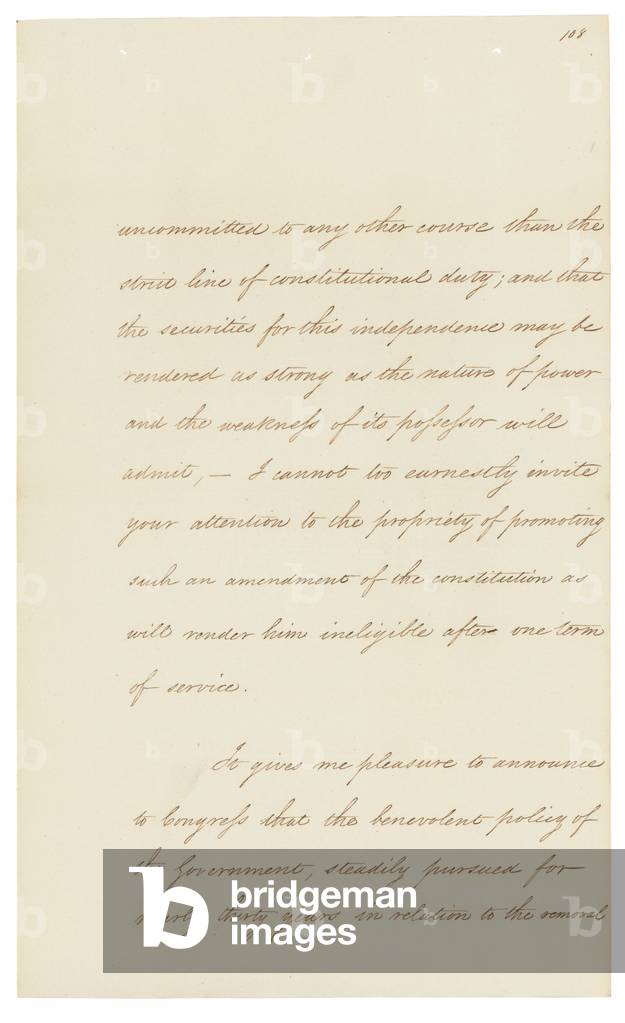 108
uncommitted to any other course than the
strict line of constitutional duty; and that
the securities for this independence may be
rendered as strong as the nature of power
and the weakneſs of its poſseſsor will
admit, — I cannot too earnestly invite
your attention to the propriety of promoting
such an amendment of the constitution as
will render him ineligible after one term
of service.
It gives me pleasure to announce
to Congreſs that the benevolent policy of
the Government, steadily pursued for
nearly thirty years in relation to the removal
bridgeman
images